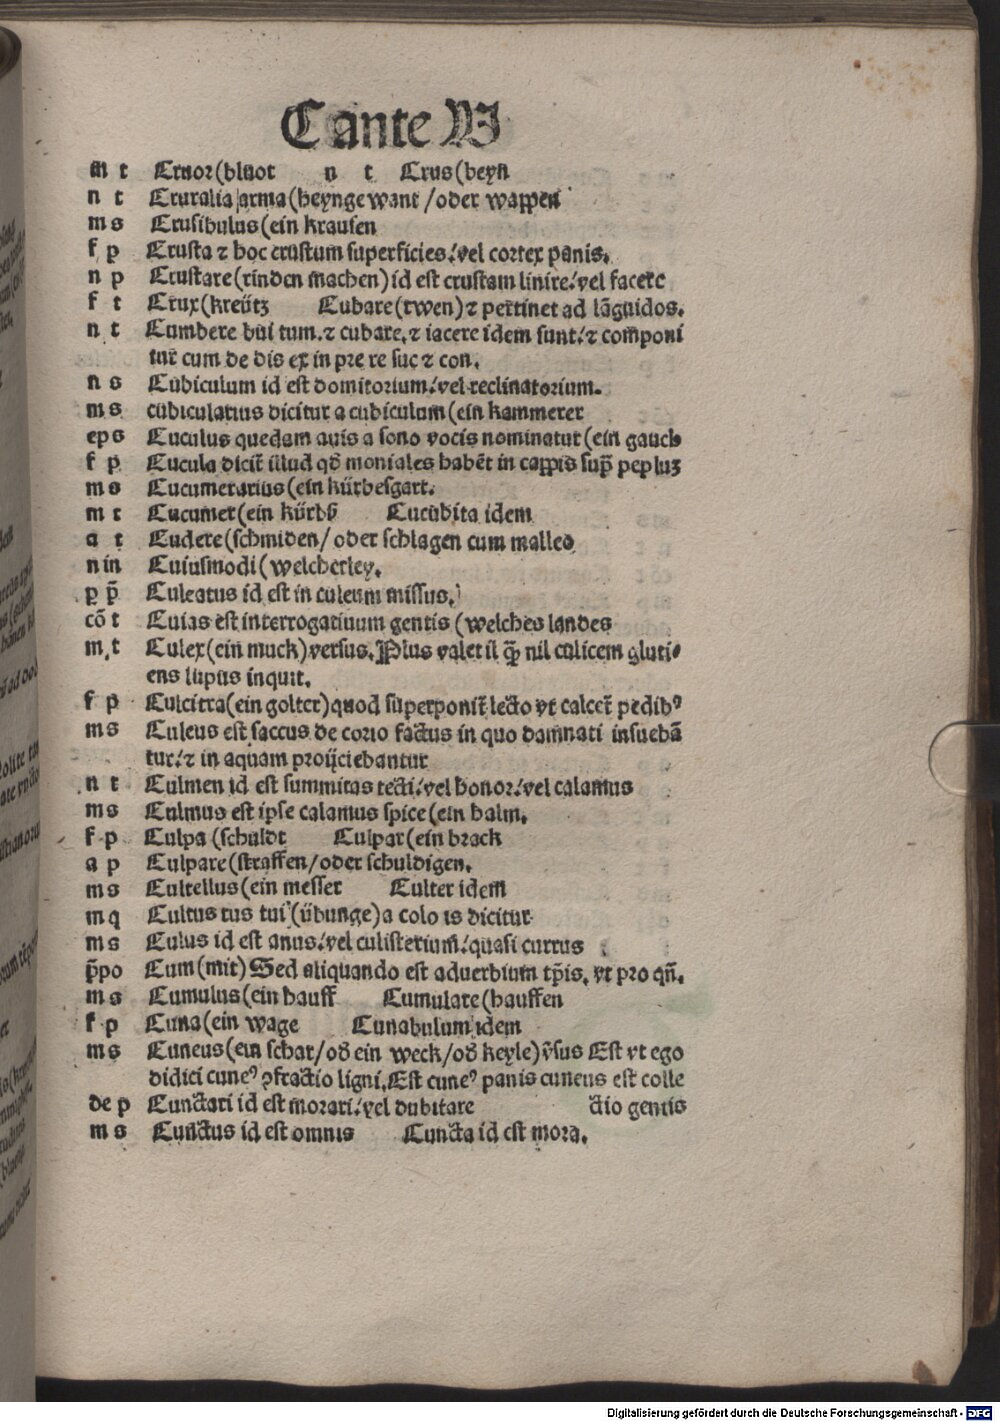 C ante V
m t Cruor(bluot n t Crus(beyn
n t Cruralia arma(beyngewant/oder wappen
m s Crusibulus(ein krausen
f p Crusta ⁊ hoc crustum superficies:vel cortex panis.
n p Crustare(rinden machen)id est crustam linire:vel facere
f t Crux(kreütz Cubare(rwen)⁊ pertinet ad lāguidos.
n t Cumbere bui tum.⁊ cubare.⁊ iacere idem sunt:⁊ componi
tur cum de dis ex in pre re suc ⁊ con.
n s Cubiculum id est domitorium:vel reclinatorium.
m s cubicularius dicitur a cubiculum(ein kammerer
ep s Cuculus quedam auis a sono vocis nominatur(ein gauch
f p Cucula dicit̄ illud qd̄ moniales habēt in cappis sup̄ pepluꝫ
m s Cucumerarius(ein kürbesgart.
m t Cucumer(ein kürbß Cucubita idem
a t Cudere(schmiden/oder schlagen cum malleo
n in Cuiusmodi(welcherley.
p p̄ Culeatus id est in culeum missus.
cō t Cuias est interrogatiuum gentis(welches landes
m t Culex(ein muck)versus.Plus valet il ꝙ̄ nil culicem gluti⸗
ens lupus inquit.
f p Culcitra(ein golter)quod superponit̄ lecto vt calcet̄ pedibꝰ
m s Culeus est saccus de corio factus in quo damnati insuebā
tur:⁊ in aquam proijciebantur
n t Culmen id est summitas tecti:vel honor:vel calamus
m s Culmus est ipse calamus spice(ein halm.
f p Culpa(schuldt Culpar(ein brack
a p Culpare(straffen/oder schuldigen.
m s Cultellus(ein messer Culter idem
m q Cultus tus tui(übunge)a colo is dicitur
m s Culus id est anus:vel culisterium:quasi currus
p̄po Cum(mit)Sed aliquando est aduerbium tp̄is.vt pro qn̄.
m s Cumulus(ein hauff Cumulare(hauffen
f p Cuna(ein wage Cunabulum idem
m s Cuneus(ein schar/od̄ ein weck/od̄ keyle)v̄sus Est vt ego
didici cuneꝰ ꝯfractio ligni.Est cuneꝰ panis cuneus est colle
de p Cunctari id est morari:vel dubitare ctio gentis
m s Cunctus id est omnis Cuncta id est mora.
Digitalisierung gefördert durch die Deutsche Forschungsgemeinschaft - DFG